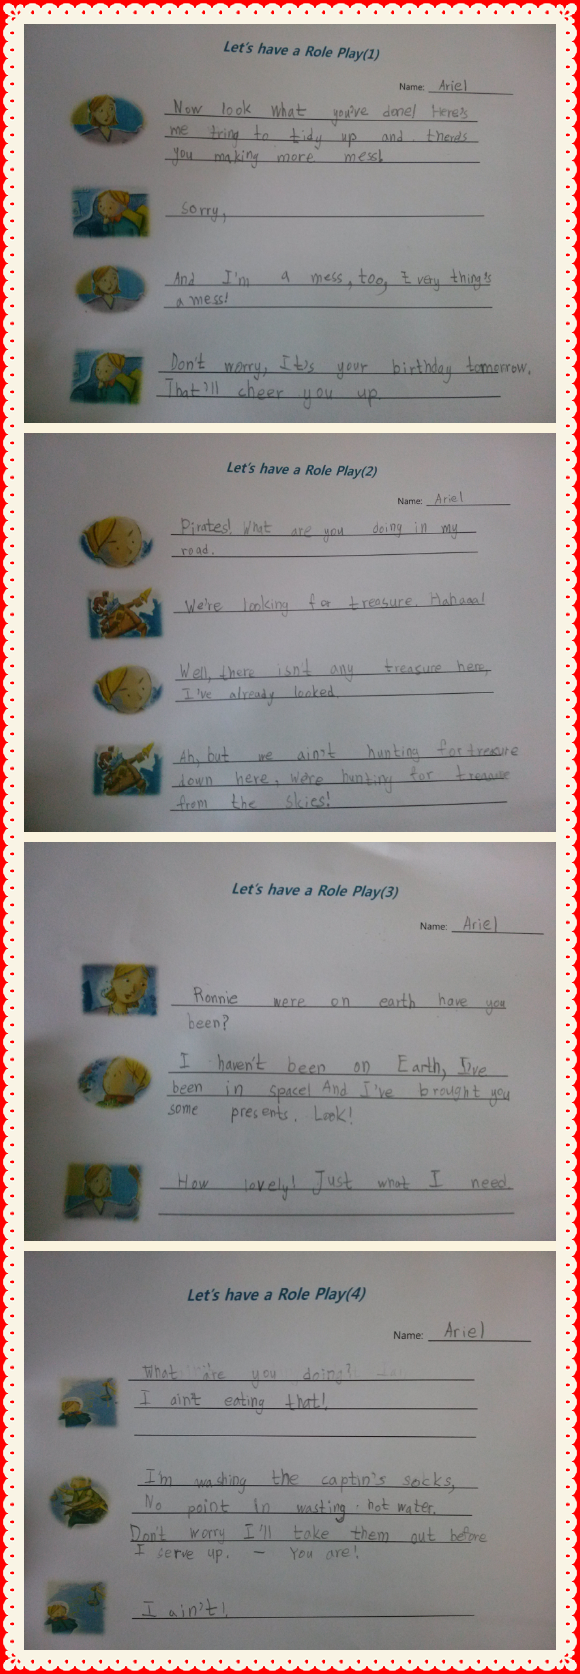 Let's have a Role Play(1)
Name: Ariel
Now look what you've done! Here's
me tring to tidy up and there's
you making more mess!
Sorry,
And I'm a mess, too, Every thing's
a mess!
Don't worry, It's your birthday tomorrow.
That'll cheer you up.
Let's have a Role Play(2)
Name: Ariel
Pirates! What are you doing in my
road.
We're looking for treasure. Hahaaa!
Well, there isn't any treasure here,
I've already looked.
Ah, but we ain't hunting for tresure
down here, We're hunting for treasure
from the skies!
Let's have a Role Play(3)
Name: Ariel
Ronnie were on earth have you
been?
I haven't been on Earth, I've
been in space! And I've brought you
some presents. Look!
How lovely! Just what I need.
Let's have a Role Play(4)
Name: Ariel
What are you doing?
I ain't eating that!
I'm washing the captin's socks,
No point in wasting hot water.
Don't worry I'll take them out before
I serve up. — You are!
I ain't!